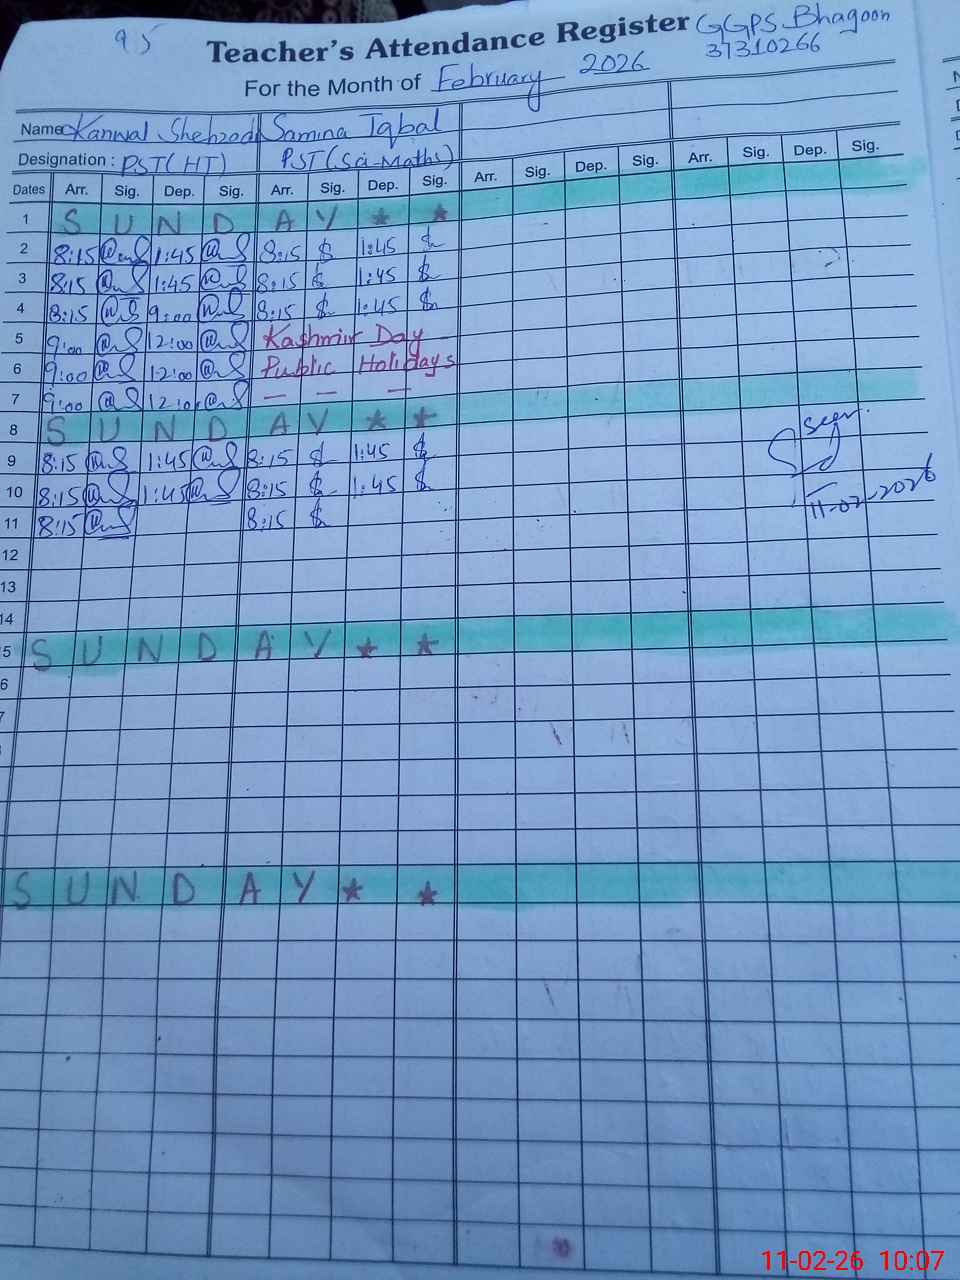 95
Teacher's Attendance Register GGPS Bhagoon
37310266
For the Month of February 2026
Name Kanwal Shehzadi Samina Iqbal
Designation : PST(HT) PST(Sci-Maths)
Dates Arr. Sig. Dep. Sig. Arr. Sig. Dep. Sig. Arr. Sig. Dep. Sig. Arr. Sig. Dep. Sig.
1 S U N D A Y * *
2 8:15 1:45 8:15 1:45
3 8:15 1:45 8:15 1:45
4 8:15 9:00 8:15 1:45
5 9:00 12:00 Kashmir Day
6 9:00 12:00 Public Holidays
7 9:00 12:0 — — —
8 S U N D A Y * *
9 8:15 1:45 8:15 1:45
10 8:15 1:45 8:15 1:45
11 8:15 8:15
Seen
11-02-2026
12
13
14
5 S U N D A Y * *
6
7
S U N D A Y * *
11-02-26 10:07